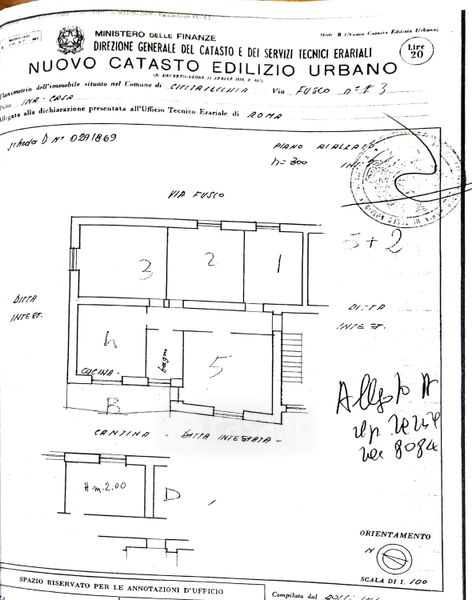 MINISTERO DELLE FINANZE
DIREZIONE GENERALE DEL CATASTO E DEI SERVIZI TECNICI ERARIALI
NUOVO CATASTO EDILIZIO URBANO
Mod. B (Nuovo Catasto Edilizio Urbano)
Lire
20
Planimetria dell'immobile situato nel Comune di CIVITAVECCHIA Via FUSCO n° 13
Ditta INA-CASA
Allegata alla dichiarazione presentata all'Ufficio Tecnico Erariale di ROMA
scheda D N° 0291869
PIANO RIALZATO
h=300
VIA FUSCO
5+2
3
2
1
DITTA
INTEST.
DITTA
INTEST.
4
5
CUCINA
bagno
B
Allegato A
rep
8084
CANTINA - DITTA INTESTATA -
H m-2.00
D
ORIENTAMENTO
N
SCALA DI 1: 100
SPAZIO RISERVATO PER LE ANNOTAZIONI D'UFFICIO
Compilata dal